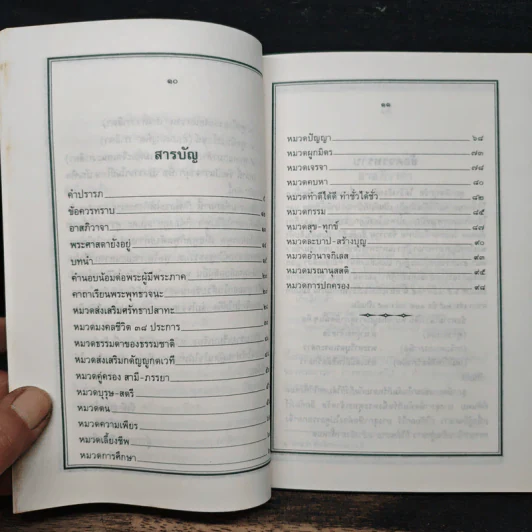 ๑๐
สารบัญ
คำปรารภ
ข้อควรทราบ
อาสภิวาจา
พระศาสดายังอยู่
บทนำ
คำนอบน้อมต่อพระผู้มีพระภาค
คาถาเรียนพระพุทธวจนะ
หมวดส่งเสริมศรัทธาปสาทะ
หมวดมงคลชีวิต ๓๘ ประการ
หมวดธรรมดาของธรรมชาติ
หมวดส่งเสริมกตัญญูกตเวที
หมวดคู่ครอง สามี-ภรรยา
หมวดบุรุษ-สตรี
หมวดตน
หมวดความเพียร
หมวดเลี้ยงชีพ
หมวดการศึกษา
๑๑
หมวดปัญญา ๖๘
หมวดผูกมิตร ๗๓
หมวดเจรจา ๗๘
หมวดคบหา ๘๐
หมวดทำดีได้ดี ทำชั่วได้ชั่ว ๘๒
หมวดกรรม ๘๕
หมวดสุข-ทุกข์ ๘๗
หมวดละบาป-สร้างบุญ ๙๐
หมวดอำนาจกิเลส ๙๓
หมวดมรณานุสสติ ๙๕
หมวดการปกครอง ๙๘